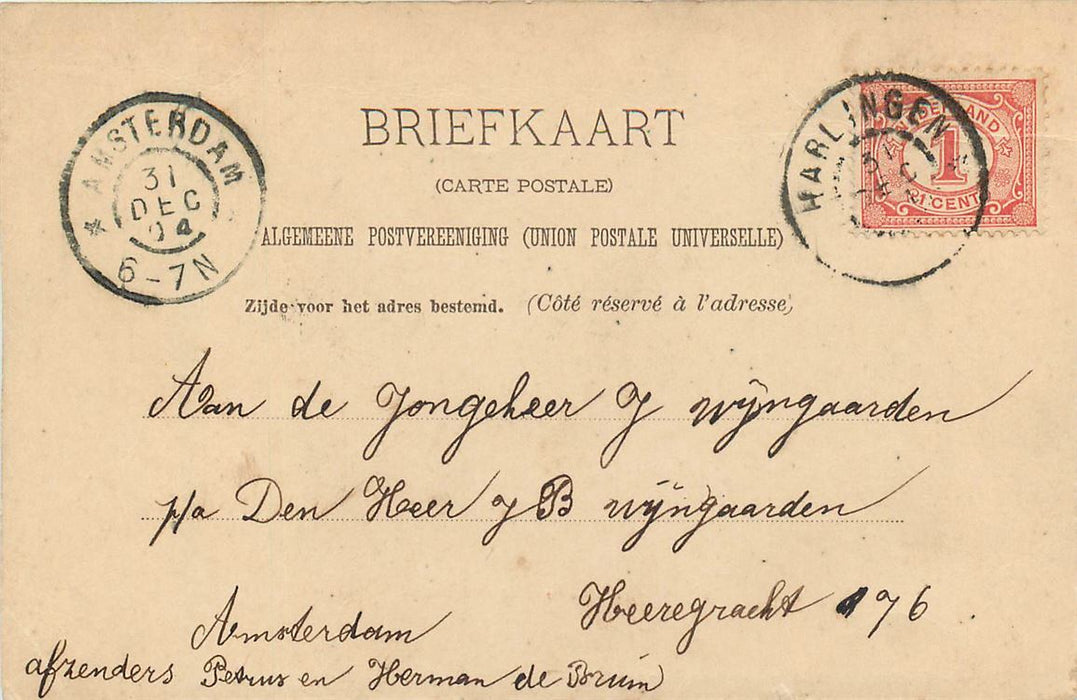 BRIEFKAART
(CARTE POSTALE)
ALGEMEENE POSTVEREENIGING (UNION POSTALE UNIVERSELLE)
Zijde voor het adres bestemd. (Côté réservé à l'adresse)
AMSTERDAM
31
DEC
04
6-7N
HARLINGEN
31
DEC
NEDERLAND
1
1 CENT
Aan de Jongeheer J Wijngaarden
p/a Den Heer J B Wijngaarden
Heeregracht 176
Amsterdam
afzenders Petrus en Herman de Bruin